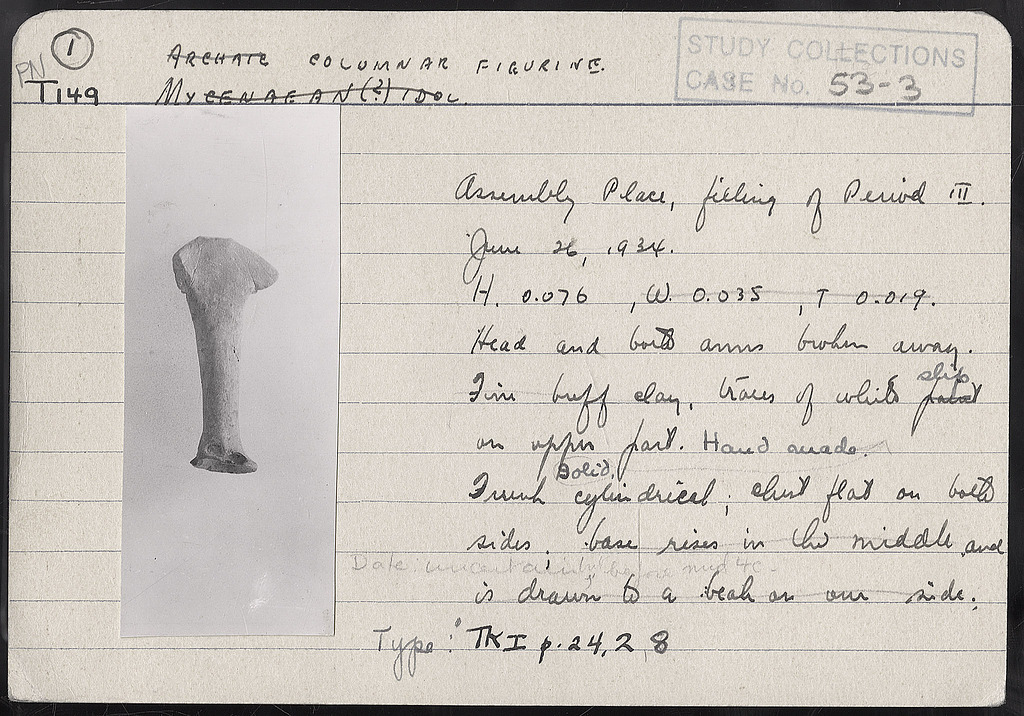 1
PN
T149
ARCHAIC COLUMNAR FIGURINE.
MYCENAEAN(?) IDOL.
STUDY COLLECTIONS
CASE No. 53-3
Assembly Place, filling of Period III.
June 26, 1934.
H. 0.076, W. 0.035, T 0.019.
Head and both arms broken away.
Fine buff clay, traces of white paint slip
on upper part. Hand made.
Solid,
Trunk cylindrical; chest flat on both
sides. base rises in the middle and
Date: uncertain, before mid 4c.
is drawn to a beak on one side.
Type: TK I p. 24, 2, 8